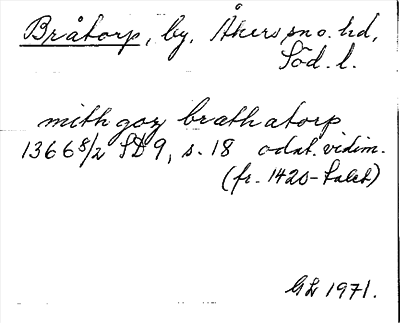 Bråtorp, by, Åkers sn o. hd,
Söd. l.
mith goz brath atorp
1366 8/2 SD 9, s. 18 odat. vidim.
(fr. 1420-talet)
GL 1971.